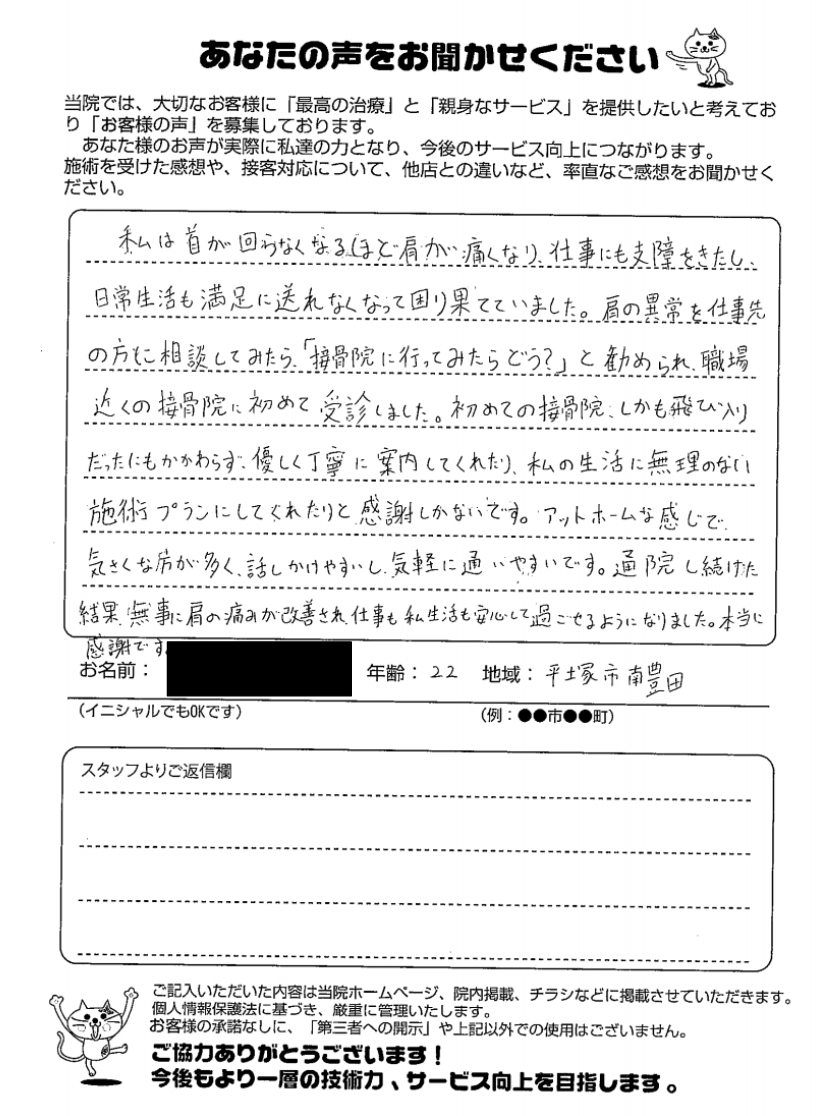 あなたの声をお聞かせください
当院では、大切なお客様に「最高の治療」と「親身なサービス」を提供したいと考えてお
り「お客様の声」を募集しております。
あなた様のお声が実際に私達の力となり、今後のサービス向上につながります。
施術を受けた感想や、接客対応について、他店との違いなど、率直なご感想をお聞かせく
ださい。
私は首が回らなくなるほど肩が痛くなり、仕事にも支障をきたし、
日常生活も満足に送れなくなって困り果てていました。肩の異常を仕事先
の方に相談してみたら、「接骨院に行ってみたらどう?」と勧められ、職場
近くの接骨院に初めて受診しました。初めての接骨院、しかも飛び入り
だったにもかかわらず、優しく丁寧に案内してくれたり、私の生活に無理のない
施術プランにしてくれたりと感謝しかないです。アットホームな感じで、
気さくな方が多く、話しかけやすいし、気軽に通いやすいです。通院し続けた
結果、無事に肩の痛みが改善され、仕事も私生活も安心して過ごせるようになりました。本当に
感謝です。
お名前: 年齢:22 地域:平塚市南豊田
(イニシャルでもOKです) (例:●●市●●町)
スタッフよりご返信欄
ご記入いただいた内容は当院ホームページ、院内掲載、チラシなどに掲載させていただきます。
個人情報保護法に基づき、厳重に管理いたします。
お客様の承諾なしに、「第三者への開示」や上記以外での使用はございません。
ご協力ありがとうございます!
今後もより一層の技術力、サービス向上を目指します。